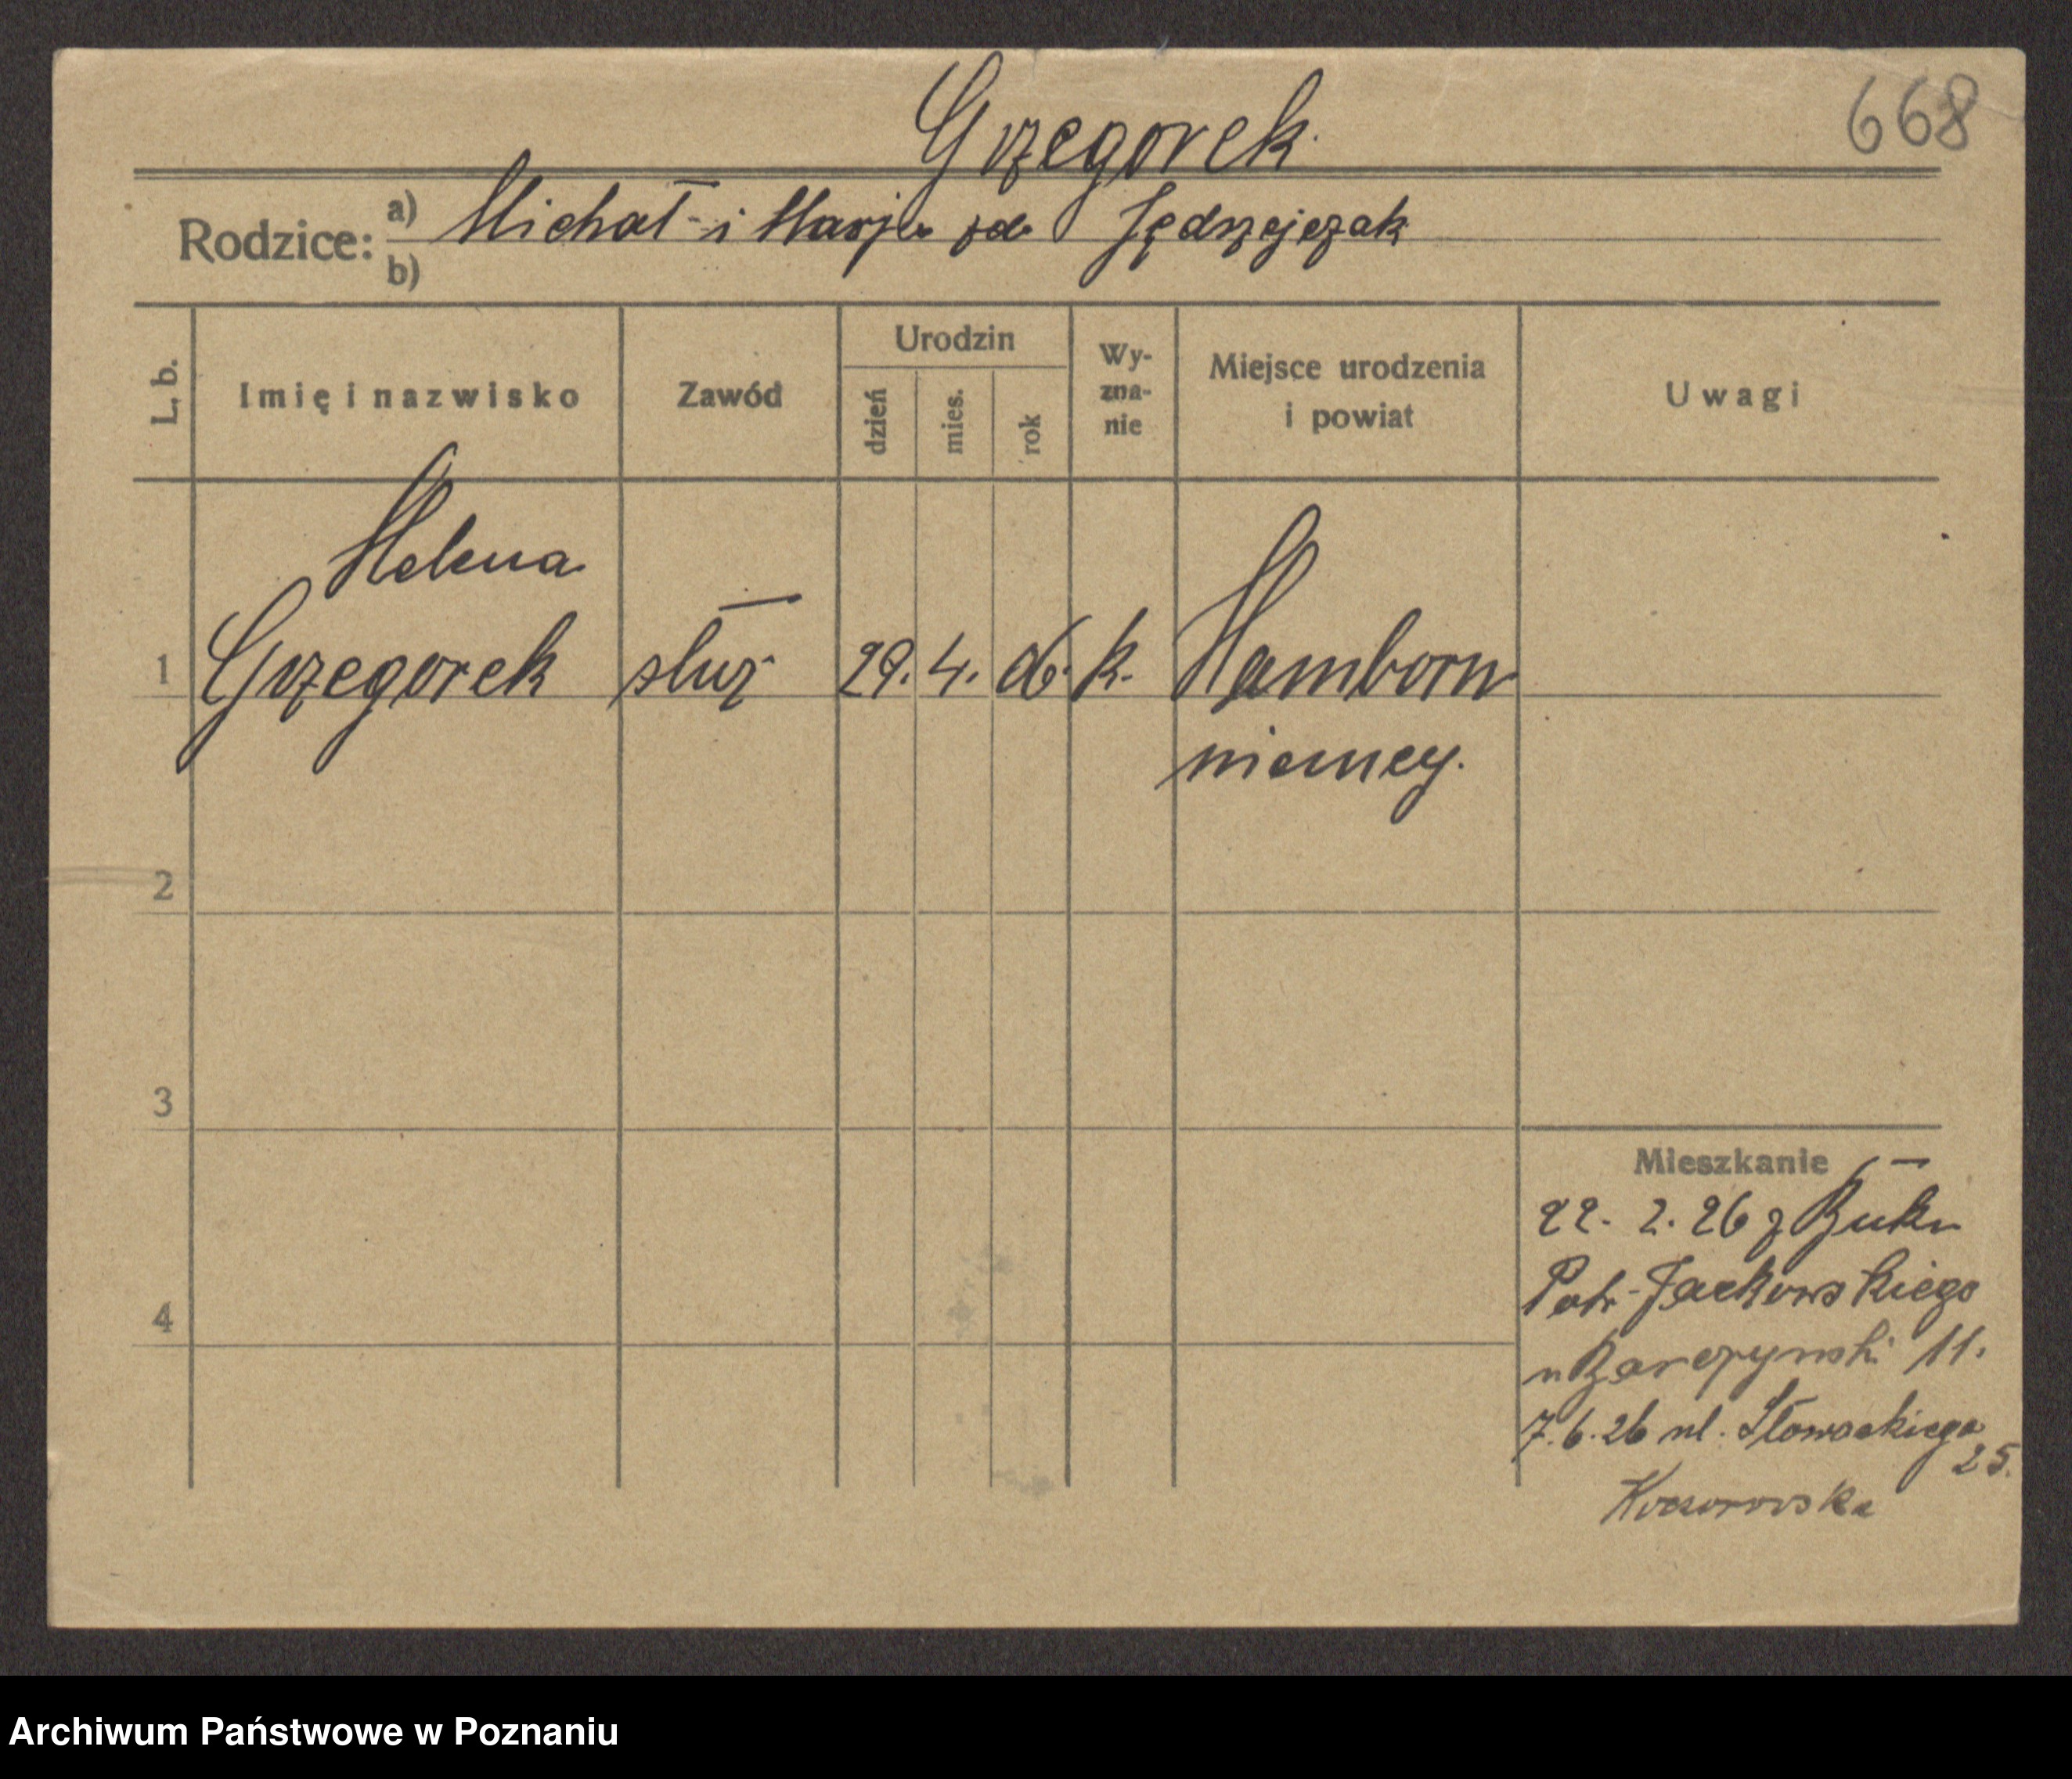 Grzegorek.
668
Rodzice: a) Michał i Marja zd. Jędrzejczak
b)
L. b.
Imię i nazwisko
Zawód
Urodzin
dzień
mies.
rok
Wy-
zna-
nie
Miejsce urodzenia
i powiat
Uwagi
Helena
1 Grzegorek służ 29. 4. 06. k. Hamborn
niemcy.
2
3
4
Mieszkanie
22. 2. 26 z Buku
Patr. Jackowskiego
u Barczynski 11.
7. 6. 26 ul. Słowackiego
25.